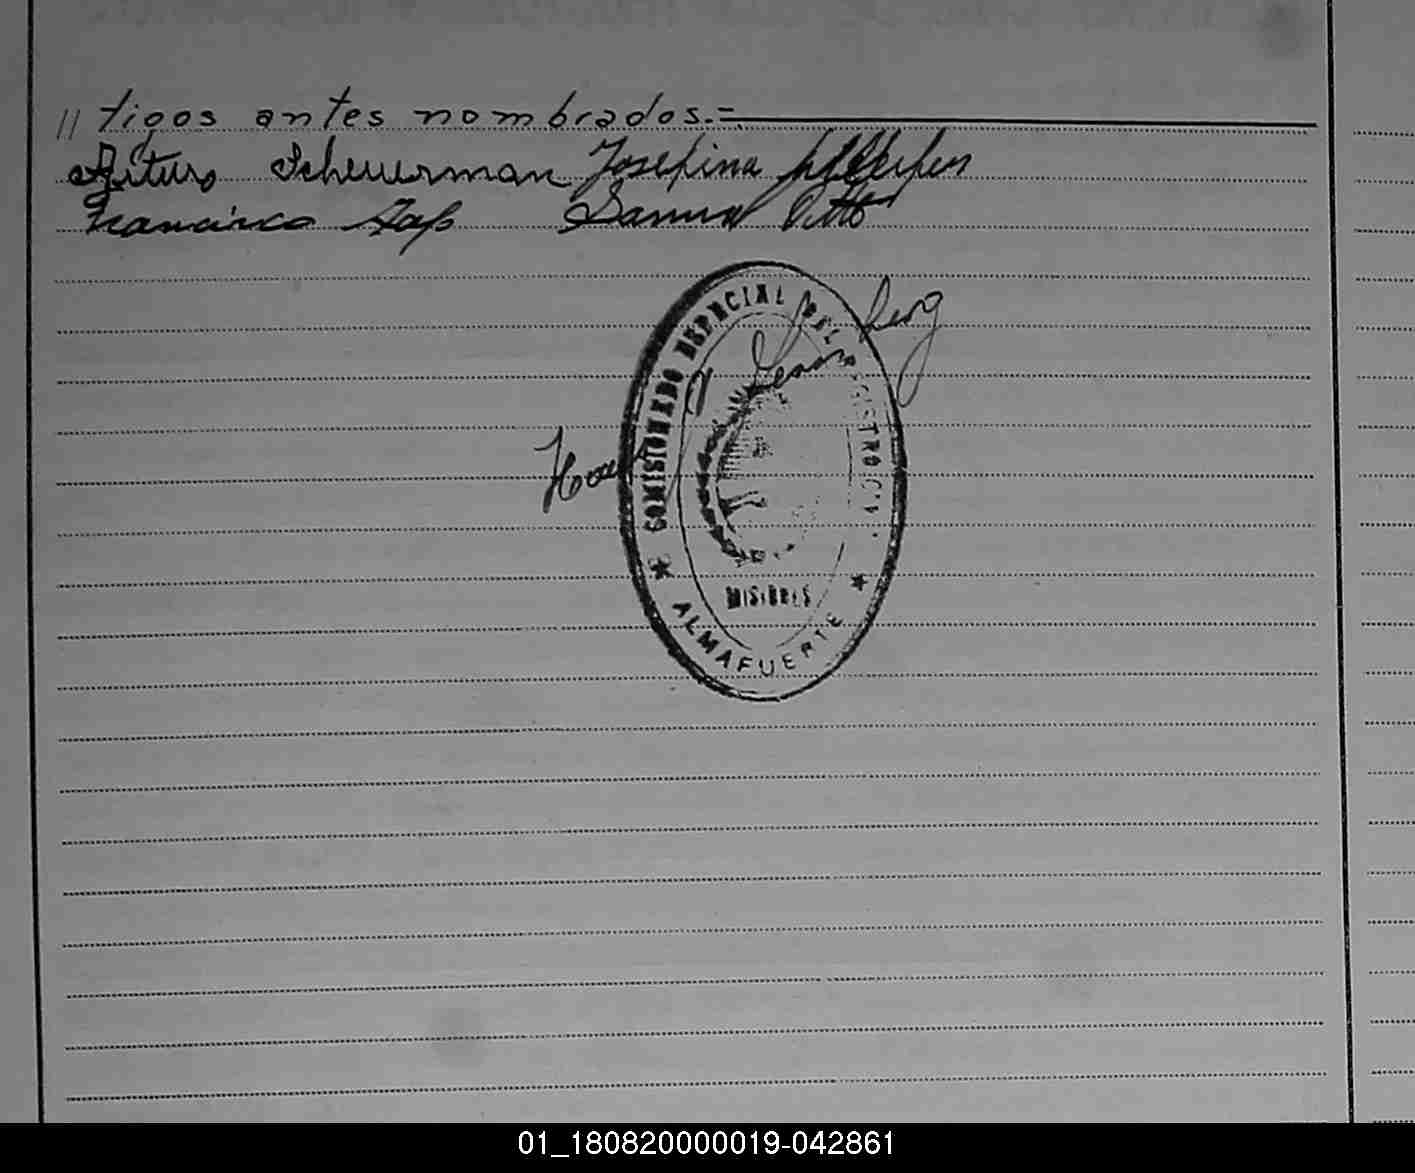 // tigos antes nombrados.=
Arturo Scheuerman Josefina
Francisco Samuel
COMISIONADO ESPECIAL DEL REGISTRO CIVIL
MISIONES
★ ALMAFUERTE ★
01_180820000019-042861